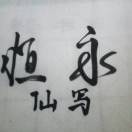 恒永
仙写